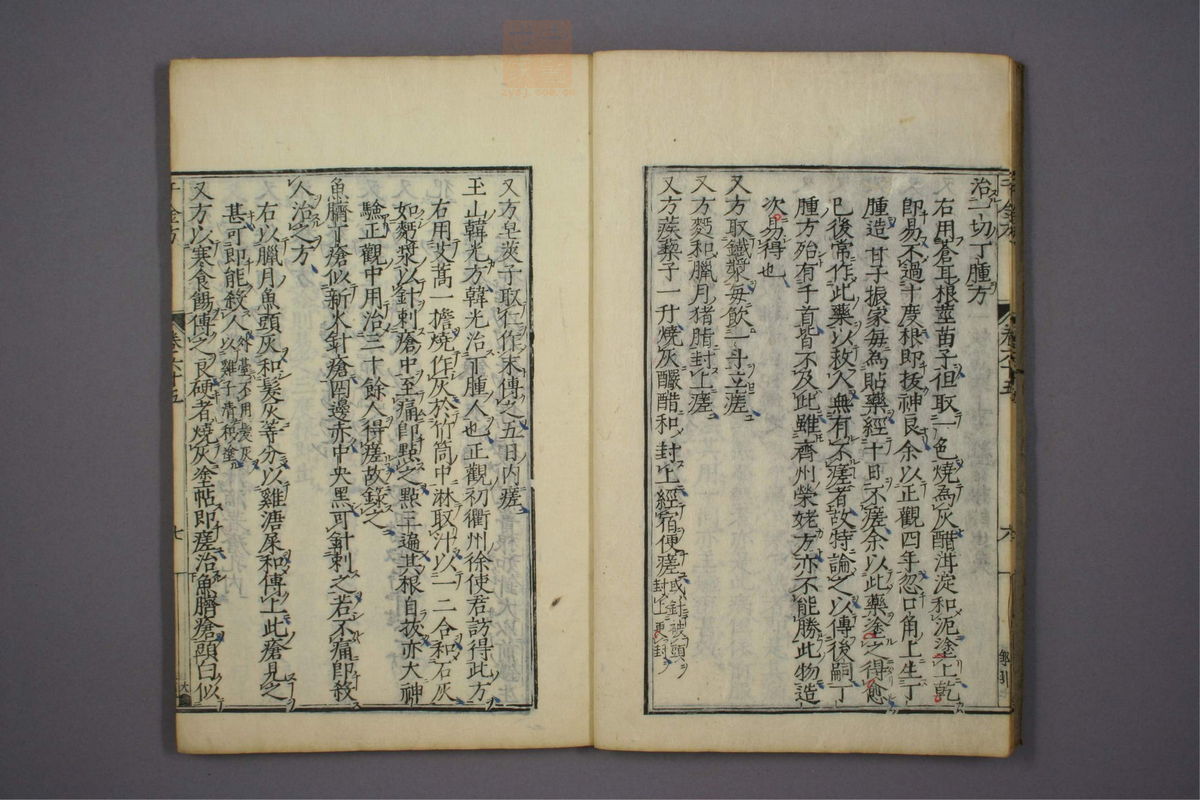 治一切丁腫方
右用蒼耳根莖苗子但取一色燒為灰醋泔淀和泥塗上乾
即易不過十度根即拔神良余以正觀四年忽口角上生丁
腫造甘子振家毎為貼藥經十日不瘥余以此藥塗之得愈
已後常作此藥以救人無有不瘥者故特論之以傳後嗣丁
腫方殆有千首皆不及此雖齊州榮姥方亦不能勝此物造
次易得也
又方取鐵漿毎飲一斗立瘥
又方麪和臘月猪脂封上瘥
又方蒺䔧子一升燒灰釅醋和封上經宿便瘥或針破頭封上更封
千金方 卷六十五 六
又方皂莢子取仁作末傅之五日内瘥
玉山韓光方韓光治丁腫人也正觀初衢州徐使君訪得此方
右用艾蒿一擔燒作灰於竹筒中淋取汁以一二合和石灰
如麪漿以針刺瘡中至痛即點之點三遍其根自拔亦大神
驗正觀中用治三十餘人得瘥故錄之
魚臍丁瘡似新火針瘡四邊赤中央黑可針刺之若不痛即殺
人治之方
右以臘月魚頭灰和髮灰等分以雞溏屎和傅上此瘡見之
甚可即能殺人外臺不用髮灰以雞子清和塗
又方以寒食餳傅之良硬者燒灰塗帖即瘥治魚臍瘡頭白似
千金方 卷六十五 七